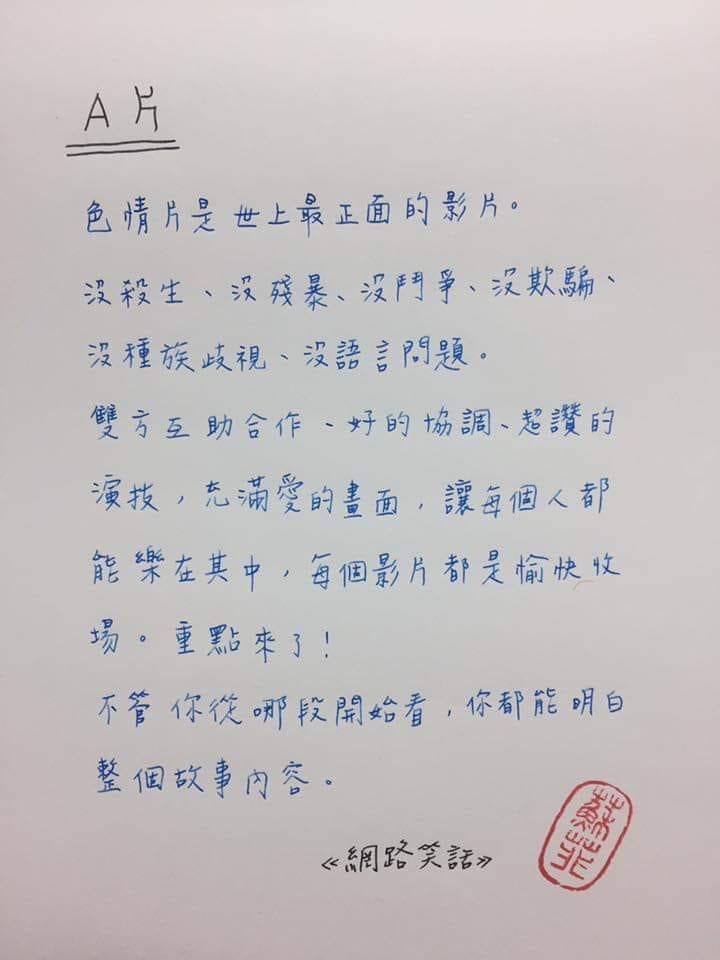 A片
色情片是世上最正面的影片。
沒殺生、沒殘暴、沒鬥爭、沒欺騙、
沒種族歧視、沒語言問題。
雙方互助合作、好的協調、超讚的
演技，充滿愛的畫面，讓每個人都
能樂在其中，每個影片都是愉快收
場。重點來了!
不管你從哪段開始看，你都能明白
整個故事內容。
《網路笑話》
蘇芷